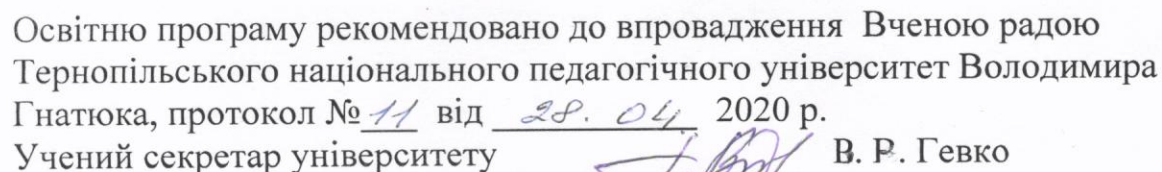 Освітню програму рекомендовано до впровадження Вченою радою
Тернопільського національного педагогічного університет Володимира
Гнатюка, протокол № 11 від 28. 04 2020 р.
Учений секретар університету В. Р. Гевко